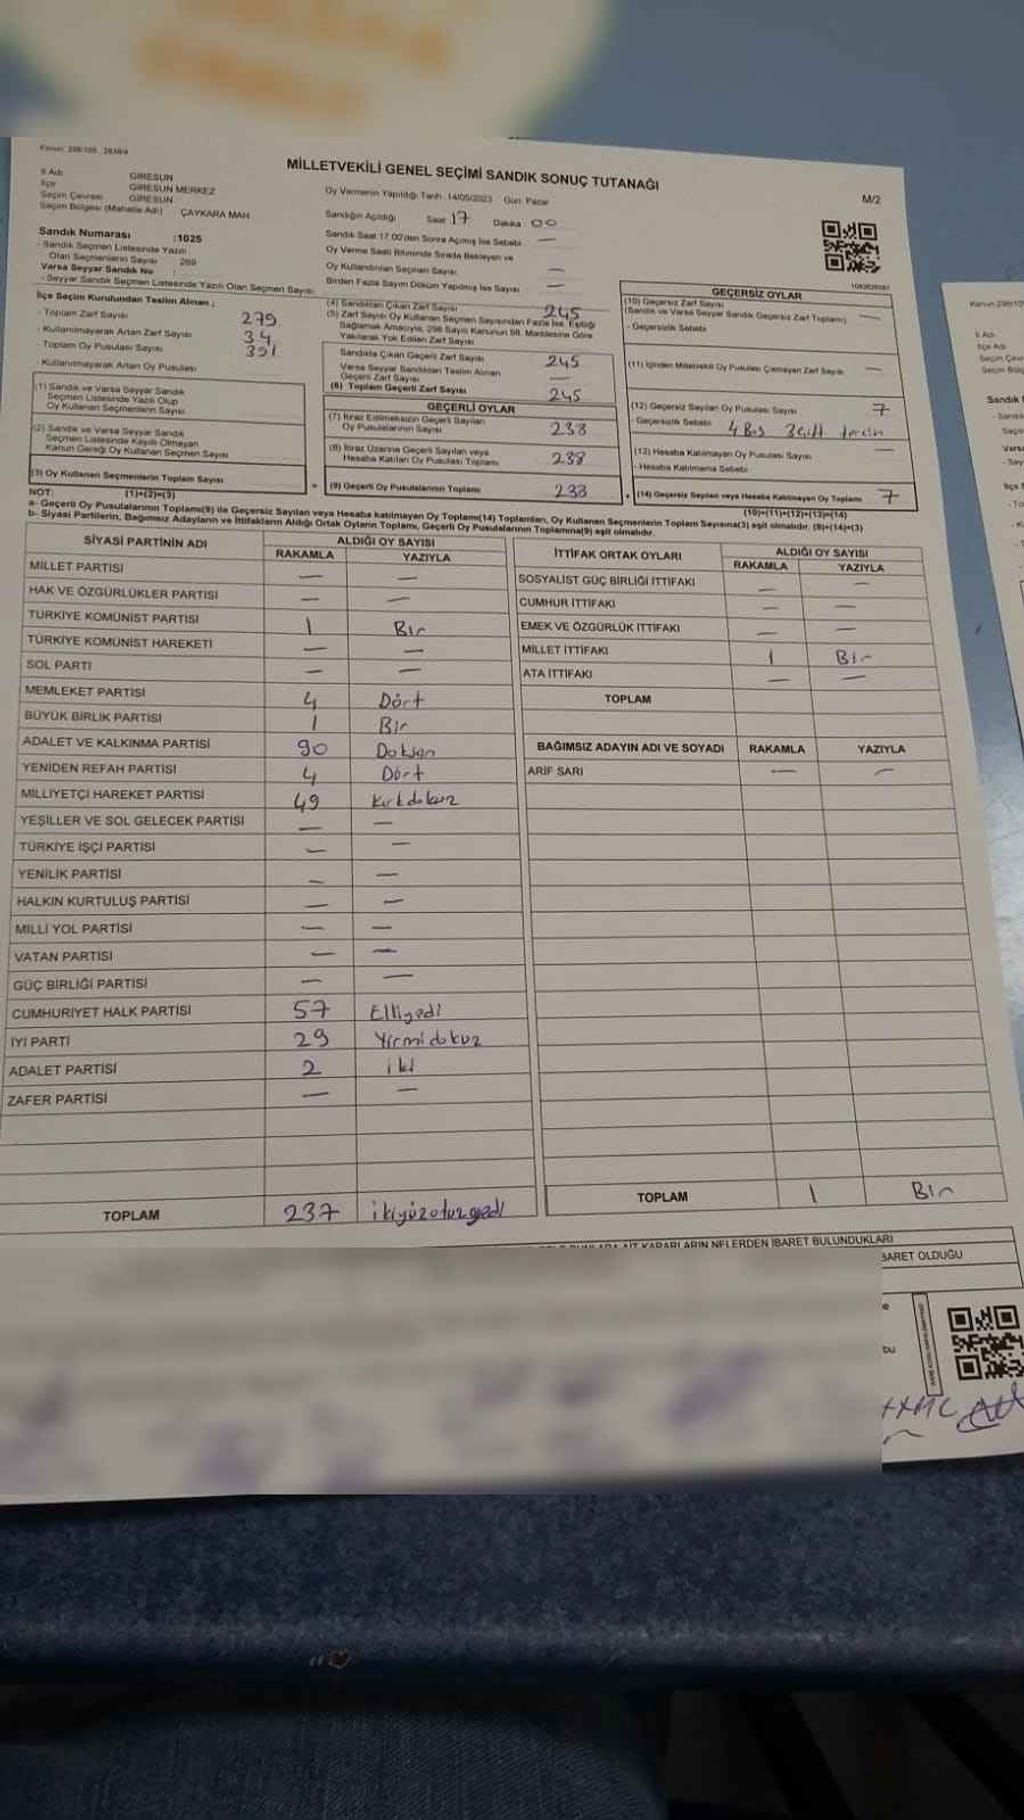 MİLLETVEKİLİ GENEL SEÇİMİ SANDIK SONUÇ TUTANAĞI
M/2
İl Adı GİRESUN
İlçe GİRESUN MERKEZ
Seçim Çevresi GİRESUN
Seçim Bölgesi (Mahalle Adı) ÇAYKARA MAH
Oy Vermenin Yapıldığı Tarih: 14/05/2023 Gün: Pazar
Sandığın Açıldığı Saat 17 Dakika 00
Sandık Saat 17.00'den Sonra Açılmış İse Sebebi —
Oy Verme Saati Bitiminde Sırada Bekleyen ve
Oy Kullandırılan Seçmen Sayısı —
Birden Fazla Sayım Döküm Yapılmış İse Sayısı —
Sandık Numarası :1025
- Sandık Seçmen Listesinde Yazılı
Olan Seçmenlerin Sayısı 269
Varsa Seyyar Sandık No :
- Seyyar Sandık Seçmen Listesinde Yazılı Olan Seçmen Sayısı
İlçe Seçim Kurulundan Teslim Alınan ;
- Toplam Zarf Sayısı 279
- Kullanılmayarak Artan Zarf Sayısı 34
- Toplam Oy Pusulası Sayısı 351
- Kullanılmayarak Artan Oy Pusulası
(1) Sandık ve Varsa Seyyar Sandık
Seçmen Listesinde Yazılı Olup
Oy Kullanan Seçmenlerin Sayısı
(2) Sandık ve Varsa Seyyar Sandık
Seçmen Listesinde Kayıtlı Olmayan
Kanun Gereği Oy Kullanan Seçmen Sayısı
(3) Oy Kullanan Seçmenlerin Toplam Sayısı
(1)+(2)=(3)
(4) Sandıktan Çıkan Zarf Sayısı 245
(5) Zarf Sayısı Oy Kullanan Seçmen Sayısından Fazla İse, Eşitliği
Bağlamak Amacıyla, 298 Sayılı Kanunun 98. Maddesine Göre
Yakılarak Yok Edilen Zarf Sayısı
Sandıkta Çıkan Geçerli Zarf Sayısı 245
Varsa Seyyar Sandıktan Teslim Alınan
Geçerli Zarf Sayısı —
(6) Toplam Geçerli Zarf Sayısı 245
GEÇERLİ OYLAR
(7) İtiraz Edilmeksizin Geçerli Sayılan
Oy Pusulalarının Sayısı 238
(8) İtiraz Üzerine Geçerli Sayılan veya
Hesaba Katılan Oy Pusulası Toplamı 238
(9) Geçerli Oy Pusulalarının Toplamı 238
GEÇERSİZ OYLAR
(10) Geçersiz Zarf Sayısı
(Sandık ve Varsa Seyyar Sandık Geçersiz Zarf Toplamı) —
- Geçersizlik Sebebi
(11) İçinden Milletvekili Oy Pusulası Çıkmayan Zarf Sayısı —
(12) Geçersiz Sayılan Oy Pusulası Sayısı 7
- Geçersizlik Sebebi 4 Boş 3 Çift tercih
(13) Hesaba Katılmayan Oy Pusulası Sayısı —
- Hesaba Katılmama Sebebi
(14) Geçersiz Sayılan veya Hesaba Katılmayan Oy Toplamı 7
(10)+(11)+(12)+(13)=(14)
NOT:
a- Geçerli Oy Pusulalarının Toplamı(9) ile Geçersiz Sayılan veya Hesaba katılmayan Oy Toplamı(14) Toplamları, Oy Kullanan Seçmenlerin Toplam Sayısına(3) eşit olmalıdır. (9)+(14)=(3)
b- Siyasi Partilerin, Bağımsız Adayların ve İttifakların Aldığı Ortak Oyların Toplamı, Geçerli Oy Pusulalarının Toplamına(9) eşit olmalıdır.
SİYASİ PARTİNİN ADI ALDIĞI OY SAYISI
RAKAMLA YAZIYLA
MİLLET PARTİSİ — —
HAK VE ÖZGÜRLÜKLER PARTİSİ — —
TÜRKİYE KOMÜNİST PARTİSİ 1 Bir
TÜRKİYE KOMÜNİST HAREKETİ — —
SOL PARTİ — —
MEMLEKET PARTİSİ 4 Dört
BÜYÜK BİRLİK PARTİSİ 1 Bir
ADALET VE KALKINMA PARTİSİ 90 Doksan
YENİDEN REFAH PARTİSİ 4 Dört
MİLLİYETÇİ HAREKET PARTİSİ 49 Kırkdokuz
YEŞİLLER VE SOL GELECEK PARTİSİ — —
TÜRKİYE İŞÇİ PARTİSİ — —
YENİLİK PARTİSİ — —
HALKIN KURTULUŞ PARTİSİ — —
MİLLİ YOL PARTİSİ — —
VATAN PARTİSİ — —
GÜÇ BİRLİĞİ PARTİSİ — —
CUMHURİYET HALK PARTİSİ 57 Elliyedi
İYİ PARTİ 29 Yirmidokuz
ADALET PARTİSİ 2 iki
ZAFER PARTİSİ — —
TOPLAM 237 ikiyüzotuzyedi
İTTİFAK ORTAK OYLARI ALDIĞI OY SAYISI
RAKAMLA YAZIYLA
SOSYALİST GÜÇ BİRLİĞİ İTTİFAKI — —
CUMHUR İTTİFAKI — —
EMEK VE ÖZGÜRLÜK İTTİFAKI — —
MİLLET İTTİFAKI 1 Bir
ATA İTTİFAKI — —
TOPLAM
BAĞIMSIZ ADAYIN ADI VE SOYADI RAKAMLA YAZIYLA
ARİF SARI — —
TOPLAM 1 Bir
AİT KARARLARIN NELERDEN İBARET BULUNDUKLARI
BARET OLDUĞU
bu